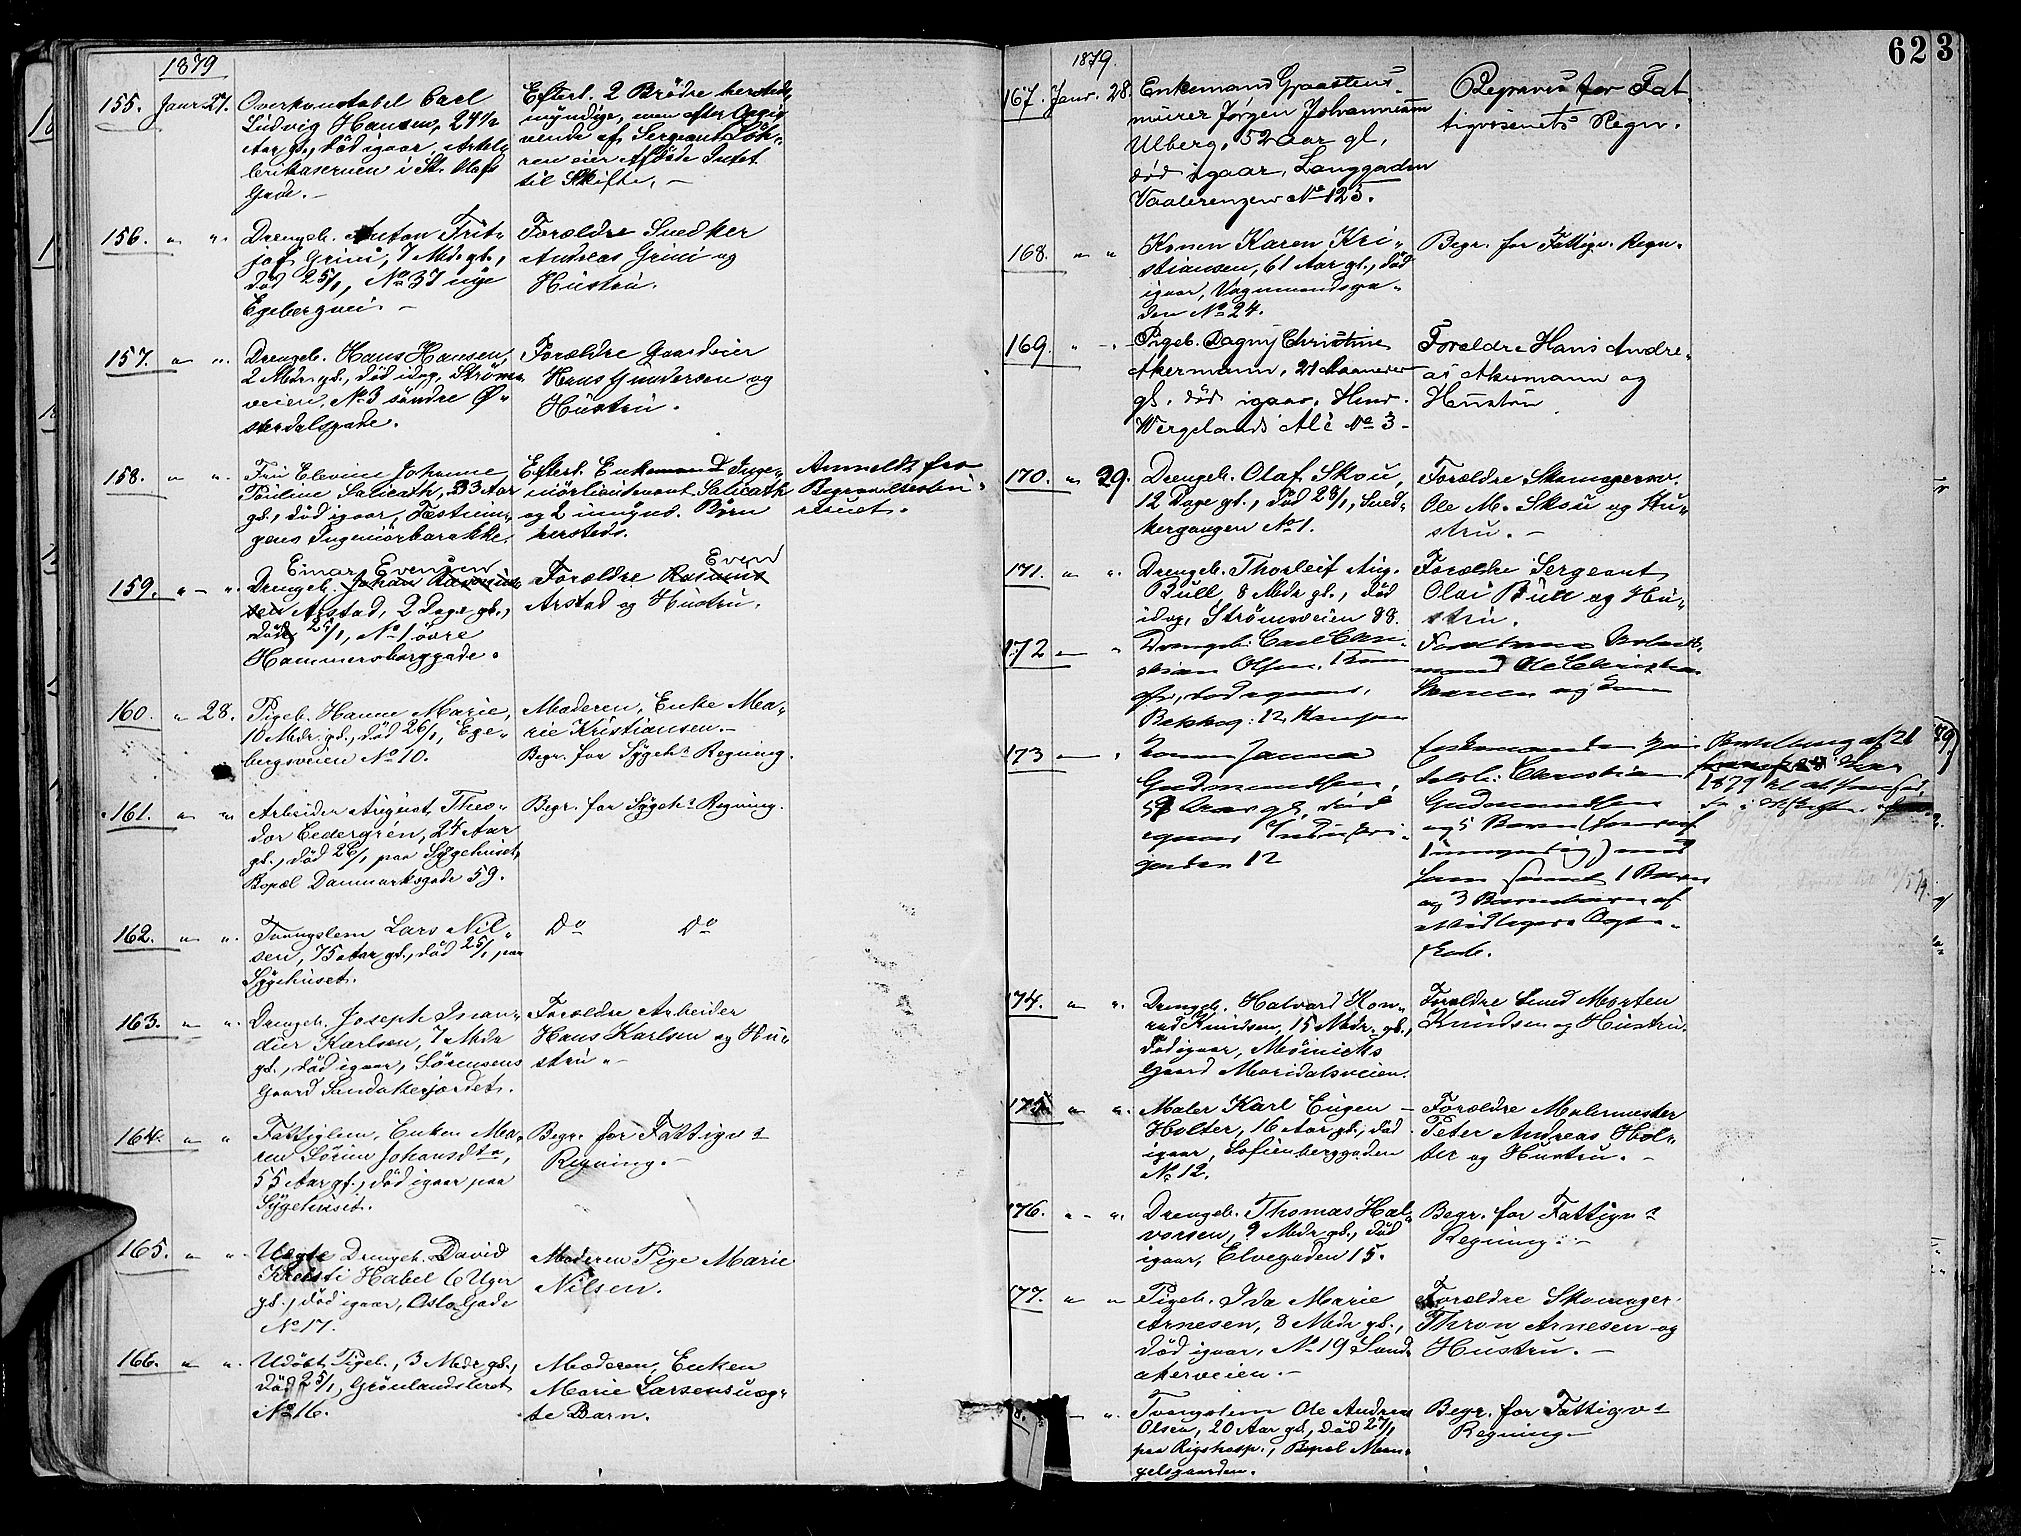 1879
155. Janr. 27. Overkonstabel Carl
Ludvig Hansen, 24½
Aar gl., död igaar, Artelle
rikasernen i St. Olafs
Gade. –
Efterl. 2 Brödre hersteds,
myndige, men efter Opgi
vende af Sergeant
eier Afdöde Intet
til Skifte. –
156. " " Drengeb. Anton Frit-
jof Grini, 7 Mdr. gl.,
död 25/1, No 37 nye
Egebergvei. –
Forældre Snedker
Andreas Grini og
Hustru.
157. " " Drengeb. Hans Hansen,
2 Mdr. gl., död idag, Ströms
veien, No 3 söndre Ø-
sterdalsgade.
Forældre Gaardeier
Hans Gundersen og
Hustru.
158. " " Fru Elevine Johanne
Pauline Salicath, 33 Aar
gl., död igaar, Fæstnin-
gens Ingeniörbarakke.
Efterl. Enkemand Inge-
niörlieutenant Salicath
og 2 umynd. Börn
hersteds.
Anmeldt fra
159. " – " Einar Evensen
Drengeb. Johan Rasmus
sen Arstad, 2 Dage gl.,
död 25/1, No 1 övre
Hammersborggade.
Even
Forældre Rasmus
Arstad og Hustru.
160. " 28. Pigeb. Hanne Marie,
10 Mdr. gl., död 26/1, Ege-
bergsveien No 10.
Moderen, Enke Ma-
rie Kristiansen. –
Begr. for Sygehs Regning.
161. " " Arbeider August Theo-
dor Cedergrén, 24 Aar
gl., död 26/1 paa Sygehuset,
Bopæl Danmarksgade 59.
Begr. for Sygehs Regning.
162. " " Tvangslem Lars Nil-
sen, 75 Aar gl., död 25/1 paa
Sygehuset.
Do Do
163. " " Drengeb. Joseph
Karlsen, 7 Mdr.
gl., död igaar, Sörensens
Gaard Sandakerjordet.
Forældre Arbeider
Hans Karlsen og Hu-
stru. –
164. " " Fattiglem, Enken Ma-
ren Sörine Johansdtr,
55 Aar gl., död igaar paa
Sygehuset.
Begr. for Fattigvs
Regning. –
165. " " Uægte Drengeb. David
Kristi Habel 6 Uger
gl., död igaar, Oslo Gade
No 17.
Moderen Pige Marie
Nilsen.
166. " " Udöbt Pigeb., 3 Mdr. gl.,
död 25/1, Grönlandsleret
No 16.
Moderen, Enken
Marie Larsens uæg-
te Barn.
623
1879.
167. Janr. 28. Enkemand Graastens-
murer Jørgen Johannesen
Ulberg, 52 Aar gl,
död igaar, Langgaden
Vaalerengen No 123.
Begraves for Fat
tigvæsenets Regn.
168. " " Konen Karen Kri-
stiansen, 61 Aar gl., död
igaar, Vognmandsga-
den No 24.
Begr. for Fattigv. Regn.
169. " – " Pigeb. Dagny Christine
Akermann, 21 Maaneder
gl. död igaar. Henr.
Wergelands Alé No 3 –
Forældre Hans Andre-
as Akermann og
Hustru.
170. " 29. Drengeb. Olaf Skou,
12 Dage gl., död 28/1, Sned-
kergangen No 1.
Forældre Skomagersv.
Ole M. Skou og Hu-
stru. –
171. " " Drengeb. Thorleif Aug.
Bull, 8 Mdr gl., död
idag, Strömsveien 88.
Forældre Sergeant
Olai Bull og Hu-
stru.
172 " " Drengeb. Carl
Olsen,
Ole Christian
173 " " Konen Janna
Gudmundsen,
igaar
gaden 12
Enkemanden
Christian
Gudmundsen
og 5 Børn
1 umyndig) med
ham samt 1 Barn
og 3 Børnebørn af
1879
174. " " Drengeb. Halvard Kon-
rad Knudsen, 15 Mdr. gl.,
död igaar, Möinichs
Gaard Maridalsveien.
Forældre Smed Morten
Knudsen og Hustru.
175. " " Maler Karl Eugen –
Holter, 16 Aar gl., död
igaar, Sofienberggaden
No 12.
Forældre Malermester
Peter Andreas Hol-
ter og Hustru. –
176. " – " Drengeb. Thomas Hal-
vorsen, 9 Mdr. gl., död
igaar, Elvegaden 15.
Begr. for Fattigvs
Regning. –
177. " " Pigeb. Ida Marie
Arnesen, 8 Mdr gl.,
död igaar, No 19 Sand-
akerveien. –
Forældre Skomager
Thron Arnesen og
Hustru. –
8. – " Tvangslem Ole Andreas
Olsen, 20 Aar gl., död 27/1
paa Rigshosp., Bopæl Man-
gelsgaarden.
Begr. for Fattigvs
Regning –